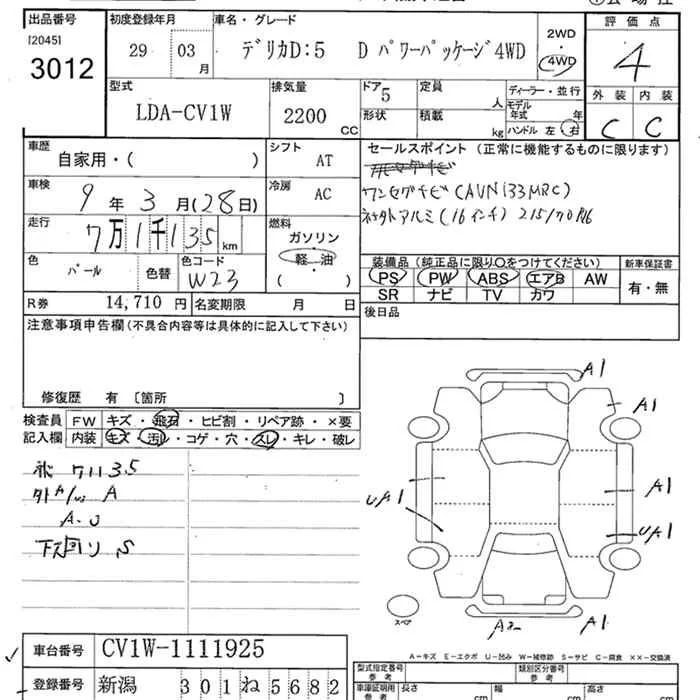 出品番号 初度登録年月 車名・グレード 評価点
[2045] 3012 29 03月 デリカD:5 D パワーパッケージ 4WD 2WD・4WD 4
型式 排気量 ドア 定員 ディーラー・並行 外装 内装
LDA-CV1W 2200 CC 5 人 モデル年式 年 C C
形状 積載 kg ハンドル 左 右
車歴 シフト セールスポイント (正常に機能するものに限ります)
自家用・( ) AT
車検 9年 3月(28日) 冷房 AC ワンセグナビ CAVN(33MRC)
走行 7万1千135km 燃料 (16インチ) 215/70R16
ガソリン・軽・油 ( )
色 パール 色替 色コード W23
装備品 (純正品に限り○をつけてください) 新車保証書
PS PW ABS エアB AW 有・無
SR ナビ TV カワ
R券 14,710 円 名変期限 月 日
後日品
注意事項申告欄 (不具合内容等は具体的に記入して下さい)
修復歴 有 〔箇所 〕
検査員記入欄 FW キズ・飛石・ヒビ割・リペア跡・×要
内装 キズ・汚レ・コゲ・穴・スレ・キレ・破レ
A
A-U
下廻り S
A1
A1
A1
UA1
UA1
A1
スペア
A-キズ E-エクボ U-凹み W-補修跡 S-サビ C-腐食 ××-交換済
車台番号 CV1W-1111925
登録番号 新潟 301 ね 5682
型式指定番号 参考 類別区分番号 参考
車庫証明用 参考 長さ cm 幅 cm 高さ cm